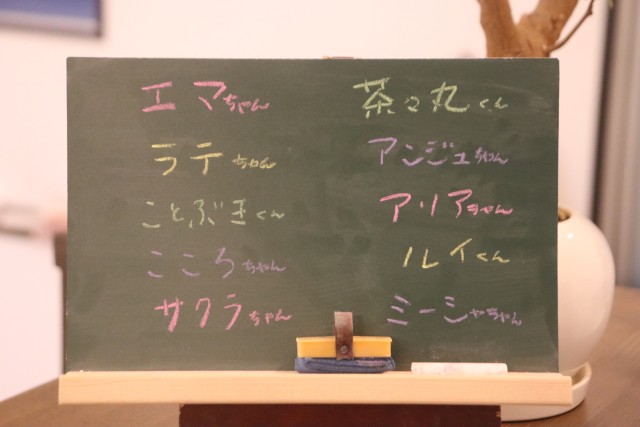 エマちゃん
ラテちゃん
ことぶきくん
こころちゃん
サクラちゃん
茶々丸くん
アンジュちゃん
アリアちゃん
ルイくん
ミーシャちゃん